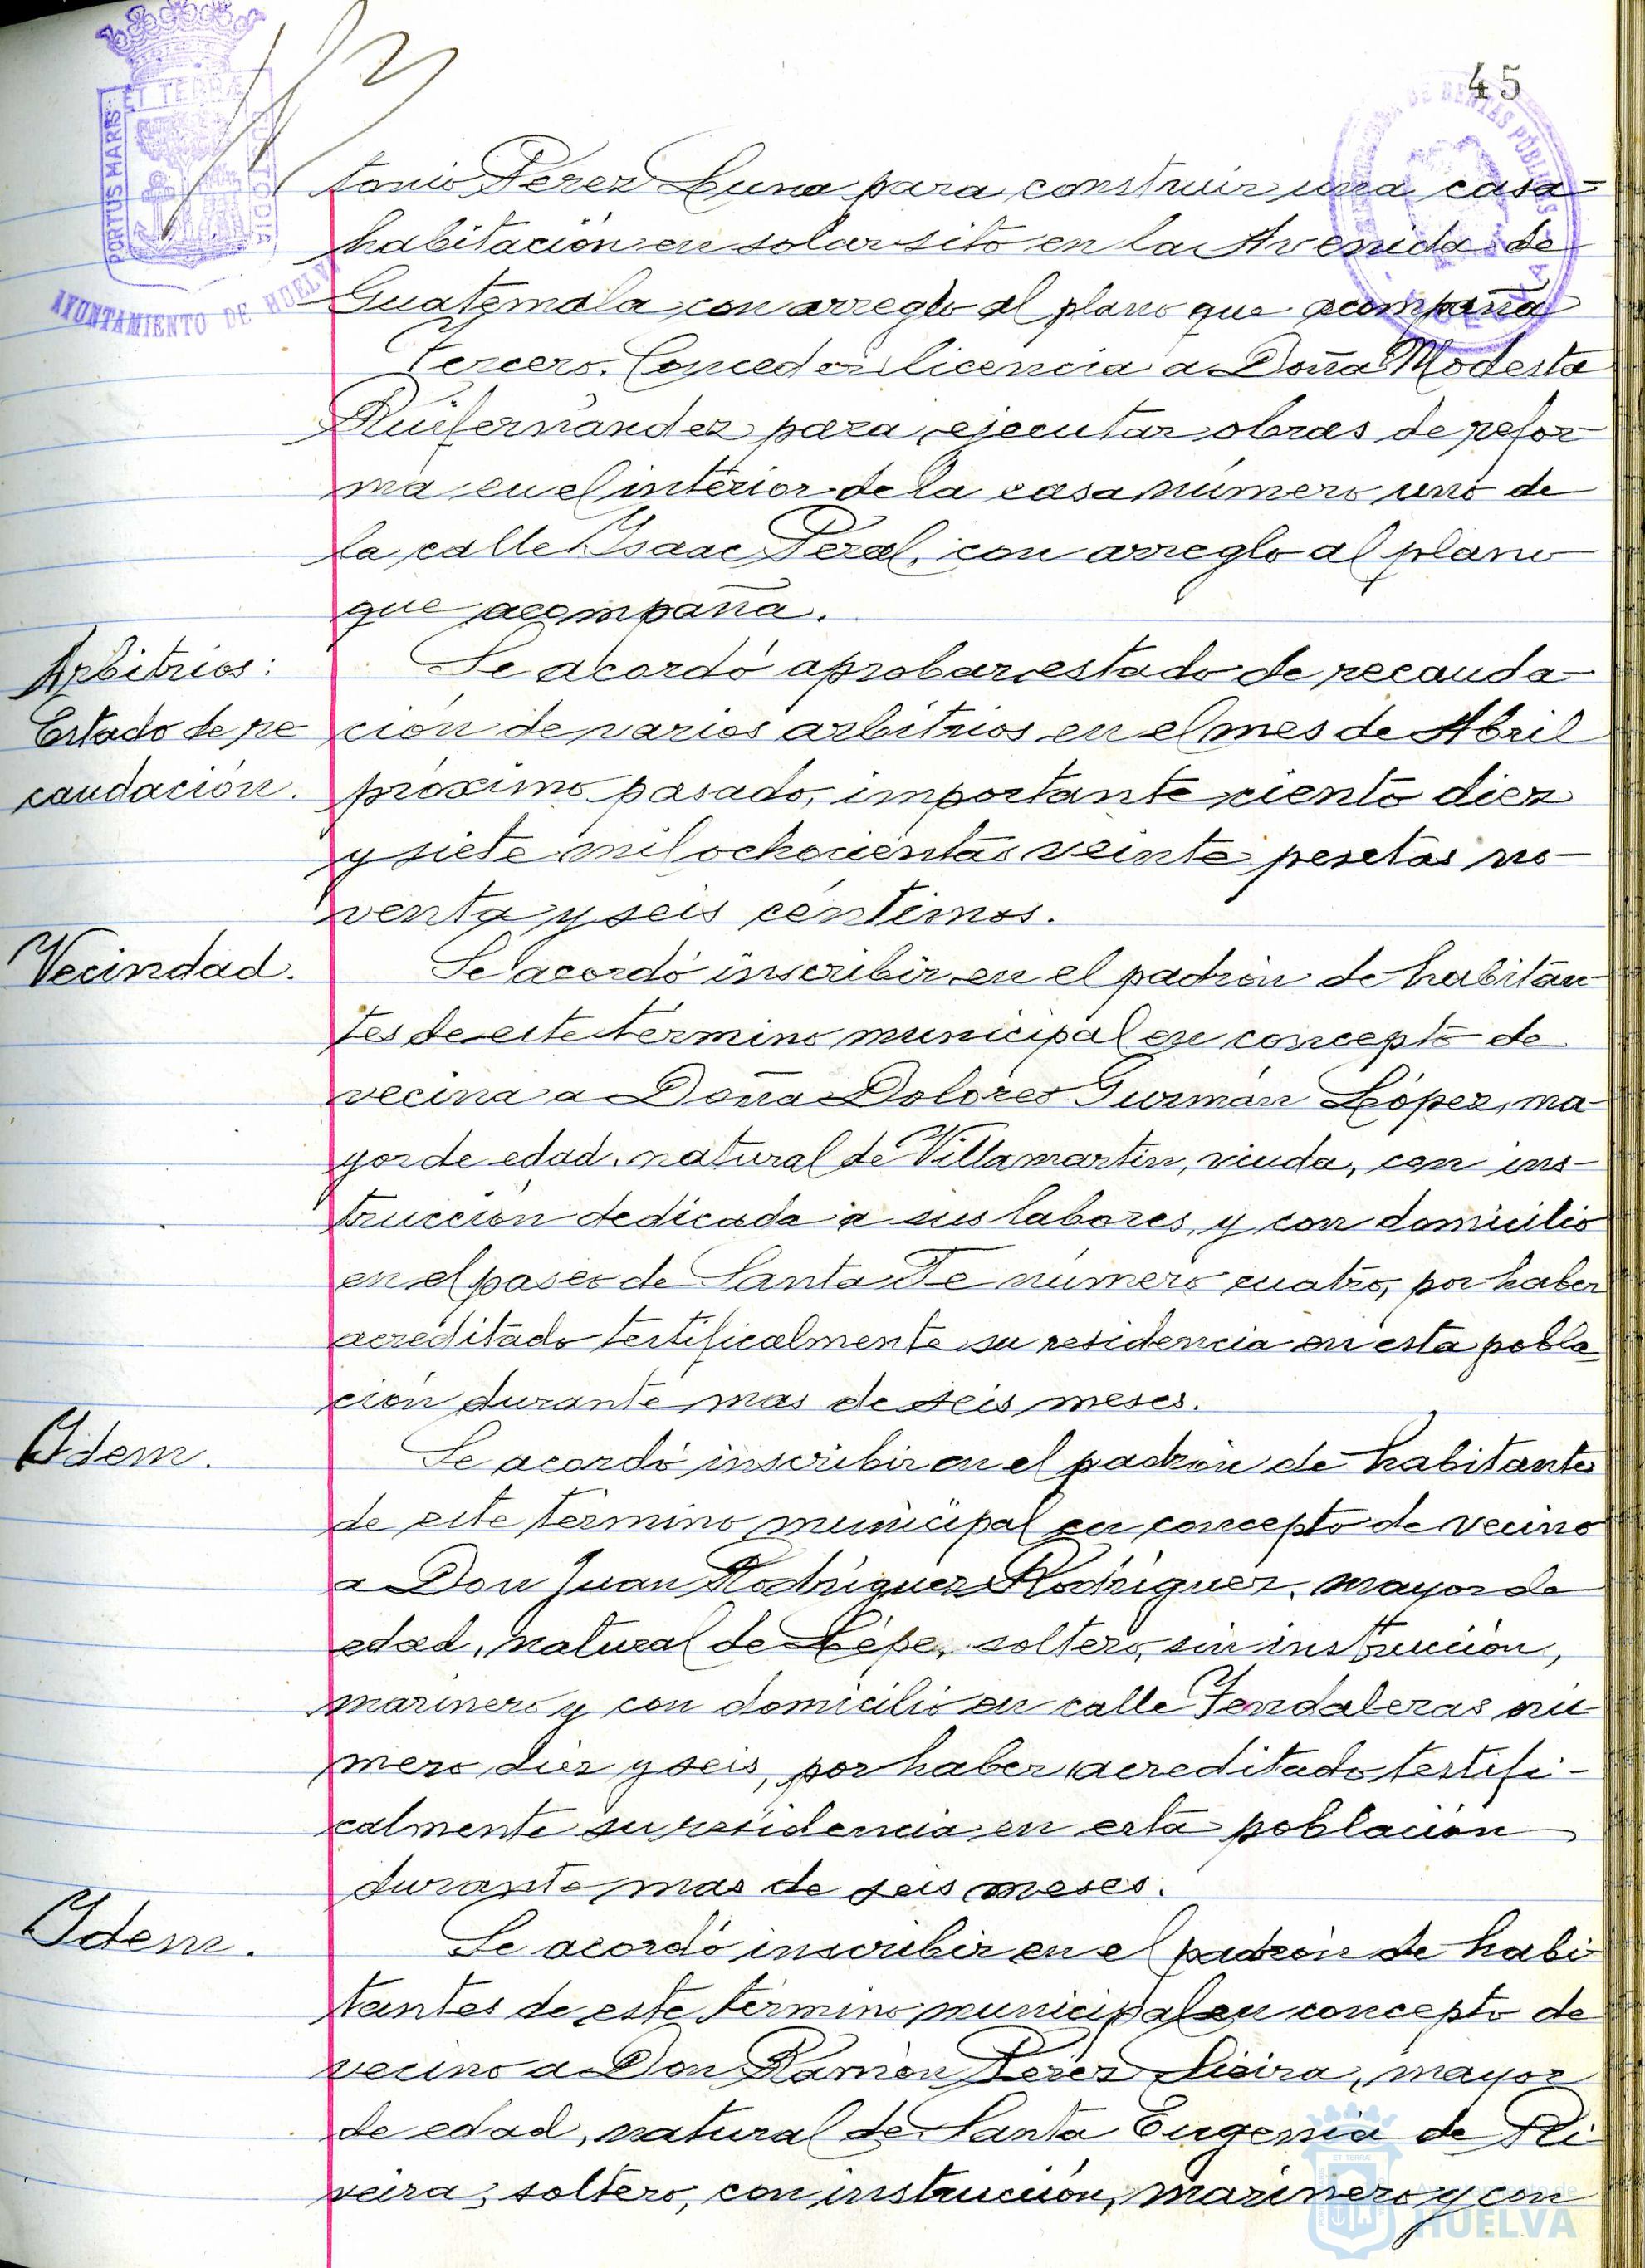 45
PORTUS MARIS ET TERRAE CUSTODIA
AYUNTAMIENTO DE HUELVA
tonio Pérez Luna para construir una casa-
habitación en solar sito en la Avenida de
Guatemala con arreglo al plano que acompaña
Tercero. Conceder licencia a Doña Modesta
Ruifernández para ejecutar obras de refor-
ma en el interior de la casa número uno de
la calle Isaac Peral, con arreglo al plano
que acompaña.
Arbitrios:
Estado de re
caudación.
Se acordó aprobar estado de recauda-
ción de varios arbitrios en el mes de Abril
próximo pasado, importante ciento diez
y siete mil ochocientas veinte pesetas no-
venta y seis céntimos.
Vecindad.
Se acordó inscribir en el padrón de habitan-
tes de este término municipal en concepto de
vecina a Doña Dolores Guzmán López, ma-
yor de edad, natural de Villamartín, viuda, con ins-
trucción dedicada a sus labores, y con domicilio
en el paseo de Santa Fe número cuatro, por haber
acreditado testificalmente su residencia en esta pobla
ción durante mas de seis meses.
Idem.
Se acordó inscribir en el padrón de habitantes
de este término municipal en concepto de vecino
a Don Juan Rodríguez Rodríguez, mayor de
edad, natural de Lepe, soltero, sin instrucción,
marinero y con domicilio en calle Tendaleras nú-
mero diez y seis, por haber acreditado testifi-
calmente su residencia en esta población
durante mas de seis meses.
Idem.
Se acordó inscribir en el padrón de habi-
tantes de este término municipal en concepto de
vecino a Don Ramón Pérez mayor
de edad, natural de Santa Eugenia de Ri
veira, soltero, con instrucción, marinero y con
Ayuntamiento de
HUELVA